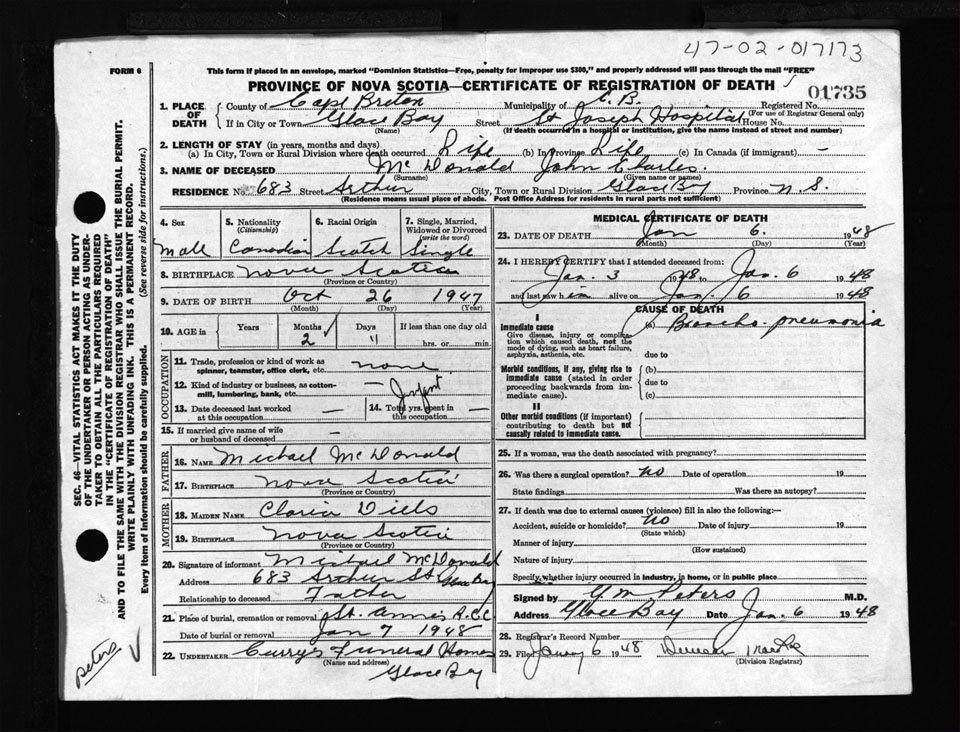 47-02-017173
FORM 6
This form if placed in an envelope, marked "Dominion Statistics—Free, penalty for improper use $300," and properly addressed will pass through the mail "FREE"
PROVINCE OF NOVA SCOTIA—CERTIFICATE OF REGISTRATION OF DEATH
01735
1. PLACE OF DEATH
County of Cape Breton Municipality of C.B. Registered No.
(For use of Registrar General only)
If in City or Town Glace Bay Street St Joseph Hospital House No.
(Name) (If death occurred in a hospital or institution, give the name instead of street and number)
2. LENGTH OF STAY (in years, months and days)
(a) In City, Town or Rural Division where death occurred Life (b) In Province Life (c) In Canada (if immigrant) —
3. NAME OF DECEASED McDonald John
(Surname) (Given name or names)
RESIDENCE No. 683 Street Arthur City, Town or Rural Division Glace Bay Province N.S.
(Residence means usual place of abode. Post Office Address for residents in rural parts not sufficient)
4. Sex
Male
5. Nationality
(Citizenship)
Canadian
6. Racial Origin
Scotch
7. Single, Married, Widowed or Divorced
(write the word)
Single
8. BIRTHPLACE Nova Scotia
(Province or Country)
9. DATE OF BIRTH Oct 26 1947
(Month) (Day) (Year)
10. AGE in Years Months Days If less than one day old
2 11 hrs. or min.
OCCUPATION
11. Trade, profession or kind of work as spinner, teamster, office clerk, etc. none
12. Kind of industry or business, as cotton-mill, lumbering, bank, etc. — Infant
13. Date deceased last worked at this occupation —
14. Total yrs. spent in this occupation —
15. If married give name of wife or husband of deceased —
FATHER
16. NAME Michael McDonald
17. BIRTHPLACE Nova Scotia
(Province or Country)
MOTHER
18. MAIDEN NAME
19. BIRTHPLACE Nova Scotia
(Province or Country)
20. Signature of informant Michael McDonald
Address 683 Arthur St Glace Bay
Relationship to deceased Father
21. Place of burial, cremation or removal St. Anns
Date of burial or removal Jan 7 1948
22. UNDERTAKER Currys Funeral Home
(Name and address)
Glace Bay
MEDICAL CERTIFICATE OF DEATH
23. DATE OF DEATH Jan 6. 1948
(Month) (Day) (Year)
24. I HEREBY CERTIFY that I attended deceased from:
Jan. 3 1948 to Jan. 6 1948
and last saw him alive on Jan. 6 1948
CAUSE OF DEATH
I
Immediate cause
Give disease, injury or complication which caused death, not the mode of dying, such as heart failure, asphyxia, asthenia, etc.
(a) Broncho-pneumonia
due to
Morbid conditions, if any, giving rise to immediate cause (stated in order proceeding backwards from immediate cause).
(b)
due to
(c)
II
Other morbid conditions (if important) contributing to death but not causally related to immediate cause.
25. If a woman, was the death associated with pregnancy?
26. Was there a surgical operation? No Date of operation 19
State findings Was there an autopsy?
27. If death was due to external causes (violence) fill in also the following:—
Accident, suicide or homicide? No Date of injury 19
(State which)
Manner of injury
(How sustained)
Nature of injury
Specify whether injury occurred in industry, in home, or in public place
Signed by Peters M.D.
Address Glace Bay Date Jan. 6 1948
28. Registrar's Record Number
29. Filed 6 1948
(Division Registrar)
SEC. 46—VITAL STATISTICS ACT MAKES IT THE DUTY
OF THE UNDERTAKER OR PERSON ACTING AS UNDER-
TAKER TO OBTAIN ALL THE PARTICULARS REQUIRED
IN THE "CERTIFICATE OF REGISTRATION OF DEATH"
AND TO FILE THE SAME WITH THE DIVISION REGISTRAR WHO SHALL ISSUE THE BURIAL PERMIT.
WRITE PLAINLY WITH UNFADING INK. THIS IS A PERMANENT RECORD.
Every item of information should be carefully supplied. (See reverse side for instructions.)
Peters